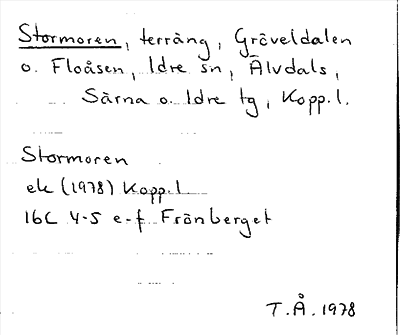 Stormoren, terräng, Gröveldalen
o. Floåsen, Idre sn, Älvdals,
Särna o. Idre tg, Kopp. l.
Stormoren
ek (1978) Kopp. l.
16C 4-5 e-f Frönberget
T.Å. 1978